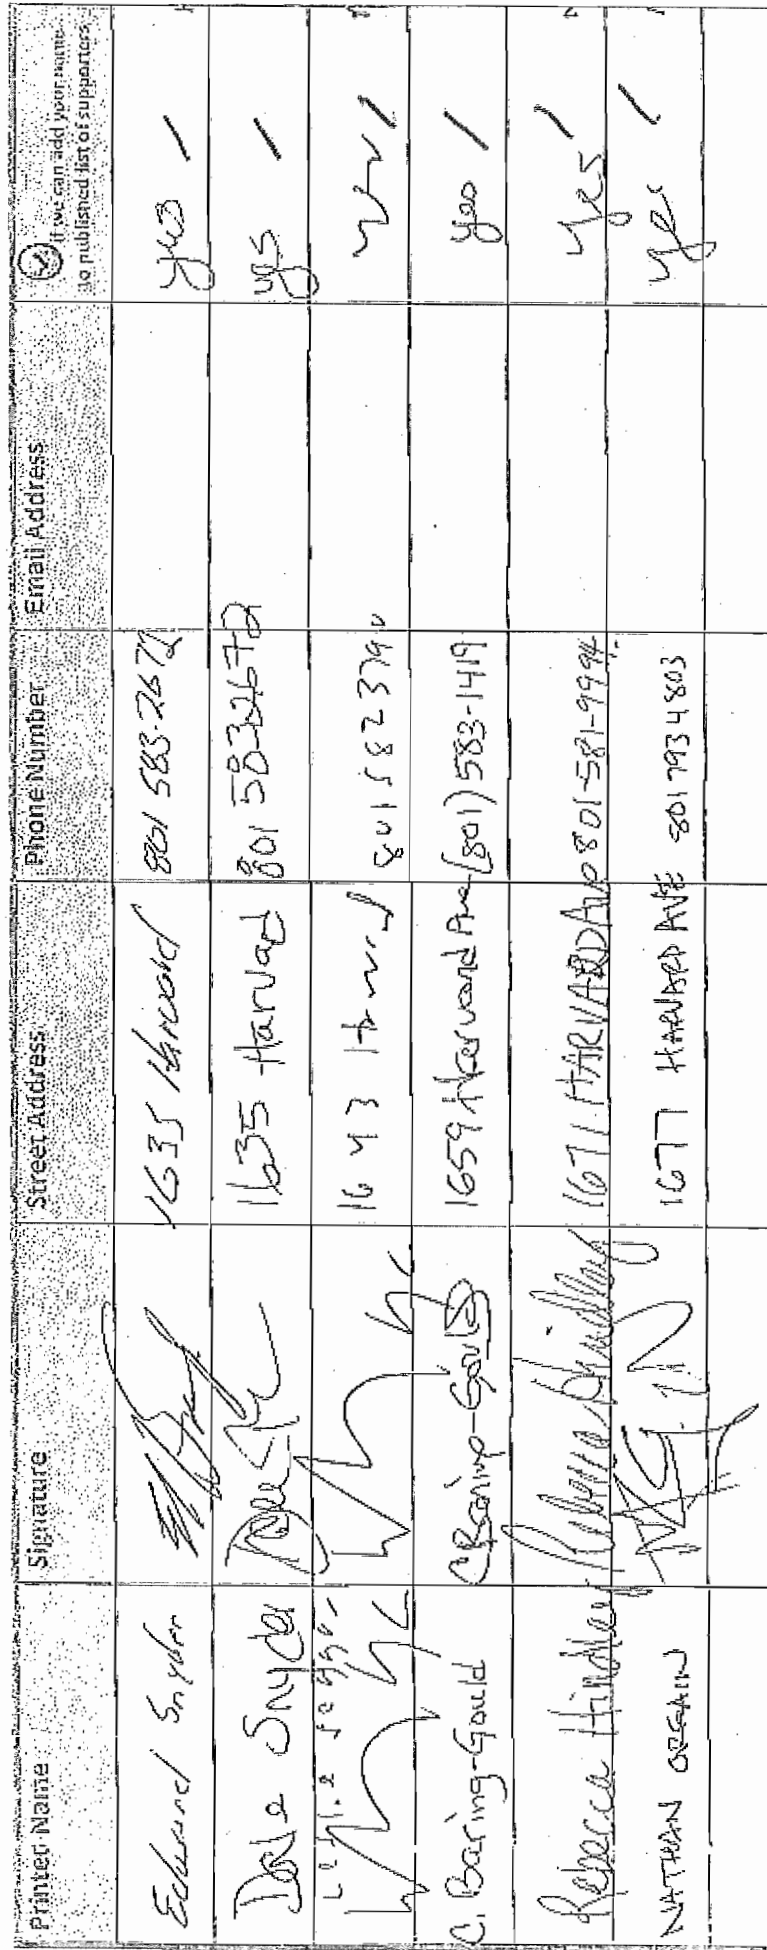 Printed Name Signature Street Address Phone Number Email Address If we can add your name to published list of supporters
Edward Snyder 1635 Harvard 801 583-2672 yes /
Dale Snyder 1635 Harvad 801 583 2672 yes /
Leslie 1643 801 582 3790 /
C. Baring-Gould CBaring-Gould 1659 Harvard Ave (801) 583-1419 yes /
Rebecca Hindley Rebecca Hindley 1671 HARVARD Ave 801-581-9994 yes /
NATHAN ORGAIN 1677 HARVARD AVE 801 793 4803 yes /